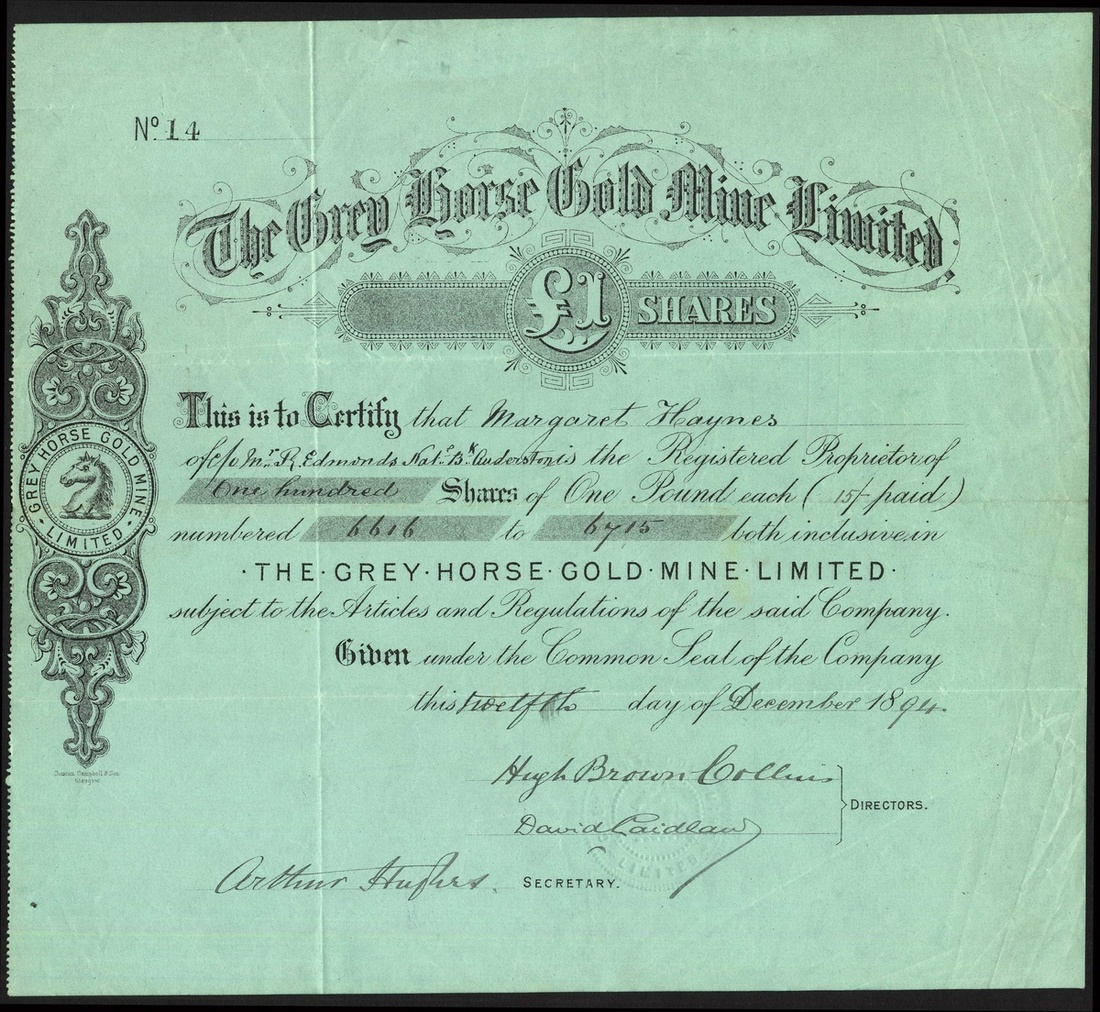 Nº 14
The Grey Horse Gold Mine Limited.
£1 SHARES
This is to Certify that Margaret Haynes
of c/o Mr. R. Edmonds Natl. Bk Anderston is the Registered Proprietor of
One hundred Shares of One Pound each (15/- paid)
numbered 6616 to 6715 both inclusive in
·THE·GREY·HORSE·GOLD·MINE·LIMITED·
subject to the Articles and Regulations of the said Company.
Given under the Common Seal of the Company
this twelfth day of December 1894.
Hugh Brown Collins
David Laidlaw
DIRECTORS.
Arthur Hughes. SECRETARY.
GREY HORSE GOLD MINE
· LIMITED ·
Duncan Campbell & Son
Glasgow
LIMITED